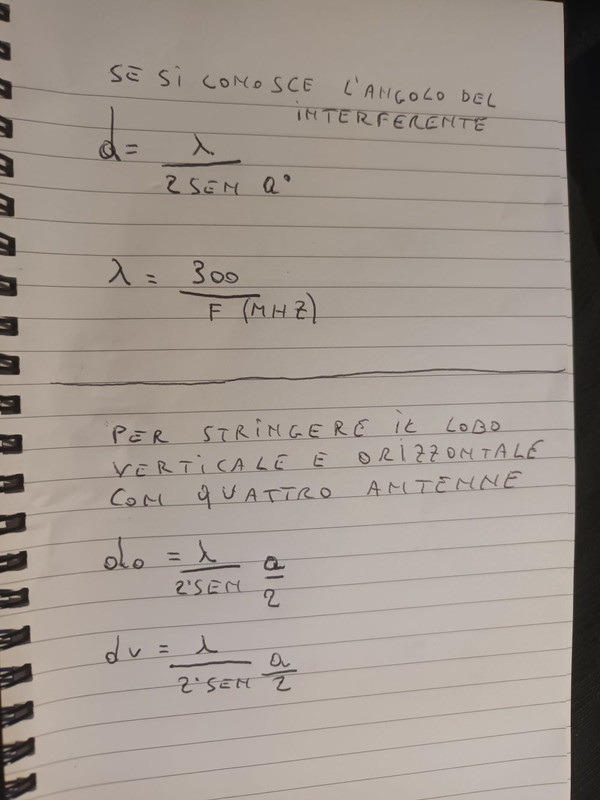 SE SI CONOSCE L'ANGOLO DEL
INTERFERENTE
d = λ / 2 SEN a°
λ = 300 / F (MHZ)
PER STRINGERE IL LOBO
VERTICALE E ORIZZONTALE
CON QUATTRO ANTENNE
do = λ / 2·SEN a/2
dv = λ / 2·SEN a/2